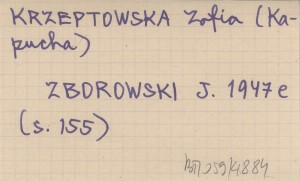 KRZEPTOWSKA Zofia (Ka-
pucha)
ZBOROWSKI J. 1947e
(s. 155)